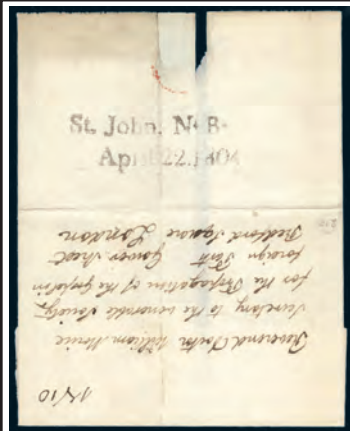 St. John, N.B.
April 22. 1804
Reverend Doctor William Morice
Secretary to the venerable Society
for the Propagation of the Gospel in
foreign Parts Gower Street
Bedford Square London